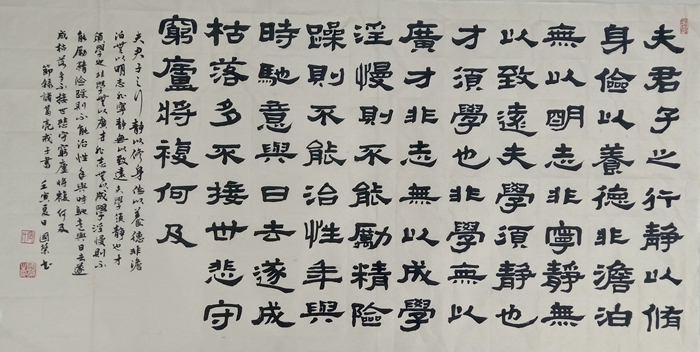 夫君子之行靜以脩
身儉以養德非澹泊
無以明志非寧靜無
以致遠夫學須靜也
才須學也非學無以
廣才非志無以成學
淫慢則不能勵精險
躁則不能治性年與
時馳意與日去遂成
枯落多不接世悲守
窮廬將複何及
夫君子之行靜以修身儉以養德非澹
泊無以明志非寧靜無以致遠夫學須靜也才
須學也非學無以廣才非志無以成學淫慢則不
能勵精險躁則不能治性年與時馳意與日去遂
成枯落多不接世悲守窮廬將複何及
節錄諸葛亮戒子書 壬寅夏日國榮書